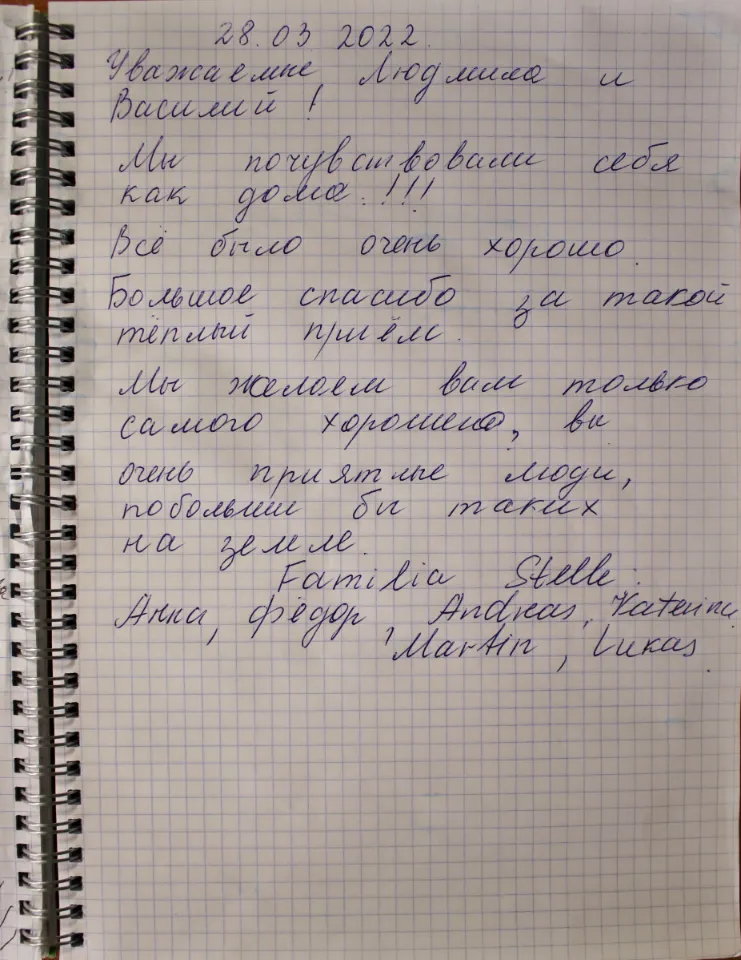 28.03 2022.
Уважаемые Людмила и
Василий!
Мы почувствовали себя
как дома.!!!
Всё было очень хорошо.
Большое спасибо за такой
тёплый приём.
Мы желаем вам только
самого хорошего, вы
очень приятные люди,
побольше бы таких
на земле.
Familia Stelle.
Анна, Фёдор, Andreas, Katerina
Martin, Lukas